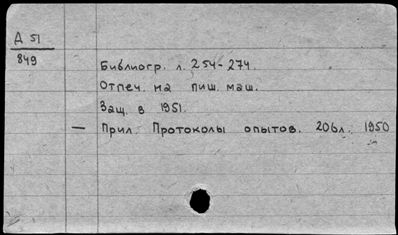 Д 51
849
Библиогр. л. 254-274.
Отпеч. на пиш. маш.
Защ. в 1951.
— Прил. Протоколы опытов. 206л. 1950